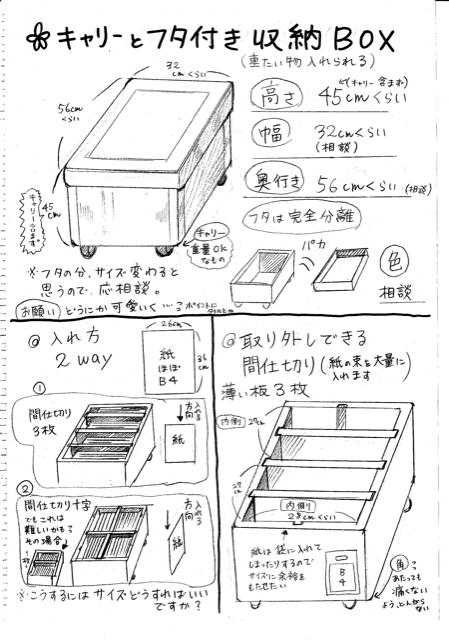 キャリーとフタ付き収納BOX
(重たい物 入れられる)
32
cmくらい
56cm
くらい
45cm
キャリー含まず
高さ
(キャリー含まず)
45cmくらい
幅
32cmくらい
(相談)
奥行き
56cmくらい(相談)
フタは完全分離
キャリー
重量OK
なもの
パカ
色
相談
※フタの分、サイズ変わると
思うので、応相談。
お願い どうにか可愛いく…?
ポイントに
@ 入れ方
2way
26cm
紙
ほぼ
B4
36
cm
①
間仕切り
3枚
入れる
方向
紙
②
間仕切り十字
でもこれは
難しいかも?
その場合↓
1枚
入れる
方向
紙
※こうするにはサイズどうすればいい
ですか?
@ 取り外しできる
間仕切り(紙の束を大量に
入れます
薄い板3枚
内側
27cm
27
cm
内側
28cmくらい
紙は袋に入れて
しまったりするので
サイズに余裕を
もたせたい
B
4
角
あたっても
痛くない
よう、とんがら
ない